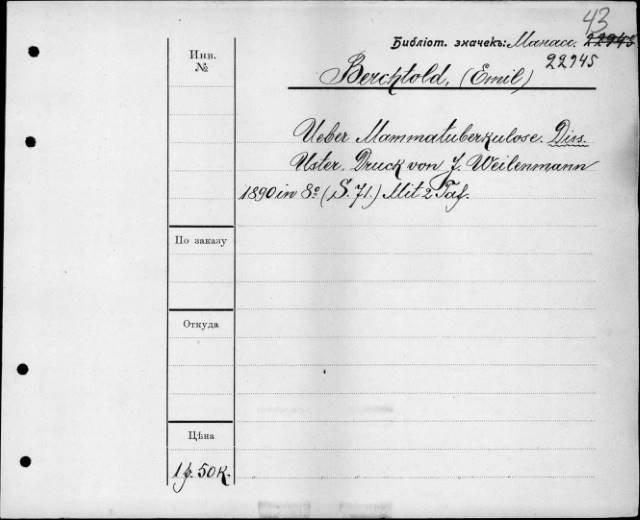 43
Библіот. значекъ: Манасс. 22945
22945
Инв.
№
Berchtold, (Emil)
Ueber Mammatuberkulose. Diss.
Uster. Druck von J. Weilenmann
1890 in 8º (S. 71.) Mit 2 Taf.
По заказу
Откуда
Цѣна
1 р. 50 к.